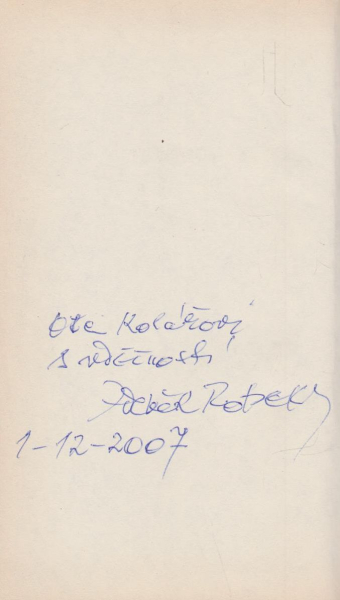 Otě Kolářovi
s vděčností
Zdeněk
1-12-2007